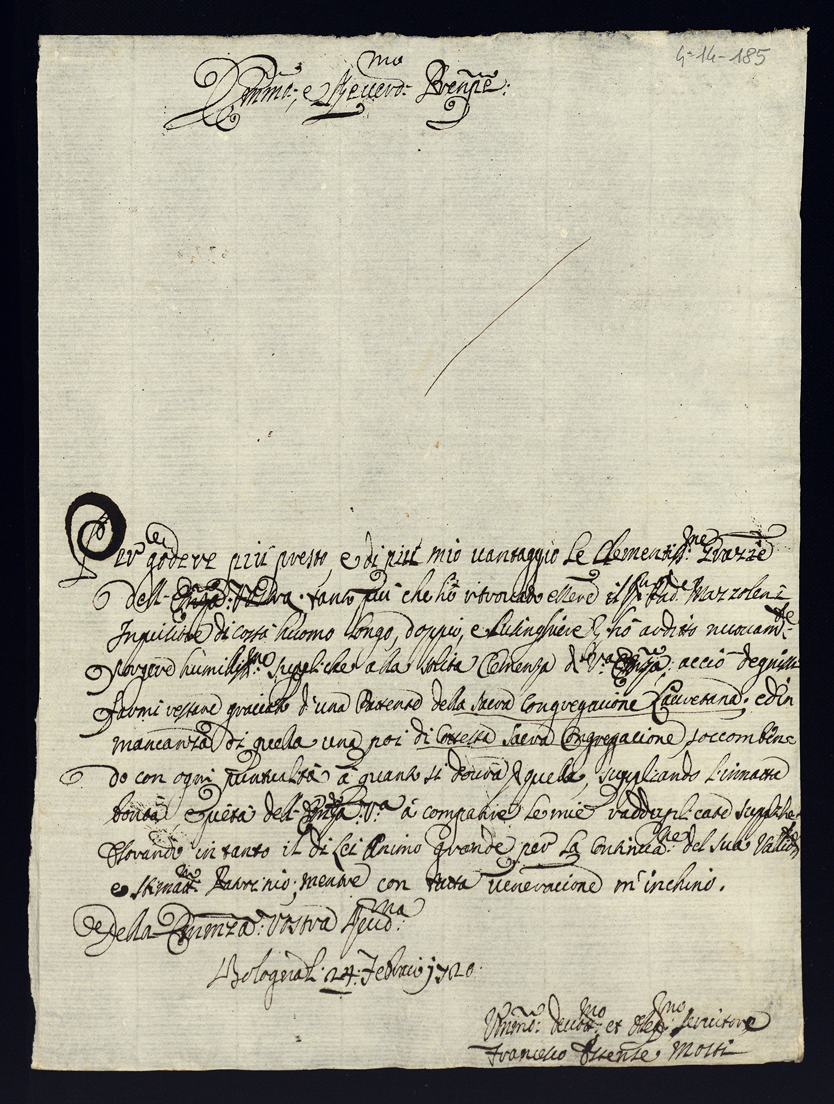 4-14-185
Emin.mo e Rever.mo Prenpe:
Per godere più presto, e di più mio vantaggio le Clementiss.me Grazie
dell' Emza: Vostra tanto più che hò ritrovato essere il Mazzoleni
di costà huomo longo, doppio, e lusinghiere hò ardito nuovam.te
porgere humiliss.me suppliche alla solita Clemenza di V.a Emza: acciò degnisi
farmi restare graciato d'una Patente della Sacra Congregacione Lauretana, ed in
mancanza di quella una poi di Cotesta Sacra Congregacione, soccomben
do con ogni puntualtà à quanto si dovrà quella, supplicando l'innatta
bontà e quità dell' Emza: V.a à compatire le mie radduplicate suppliche
in tanto il di Lei Animo grande per la Continua.ne del suo Valid.o
e stimat.mo Patrinio; mentre con tutta venevacione m'inchino.
Della Eminza: Vostra Rev.ma
Bologna li 24: Febraio 1720.
Umin.mo devot.mo et Obl.mo servitore
Francesco Estense Mosti